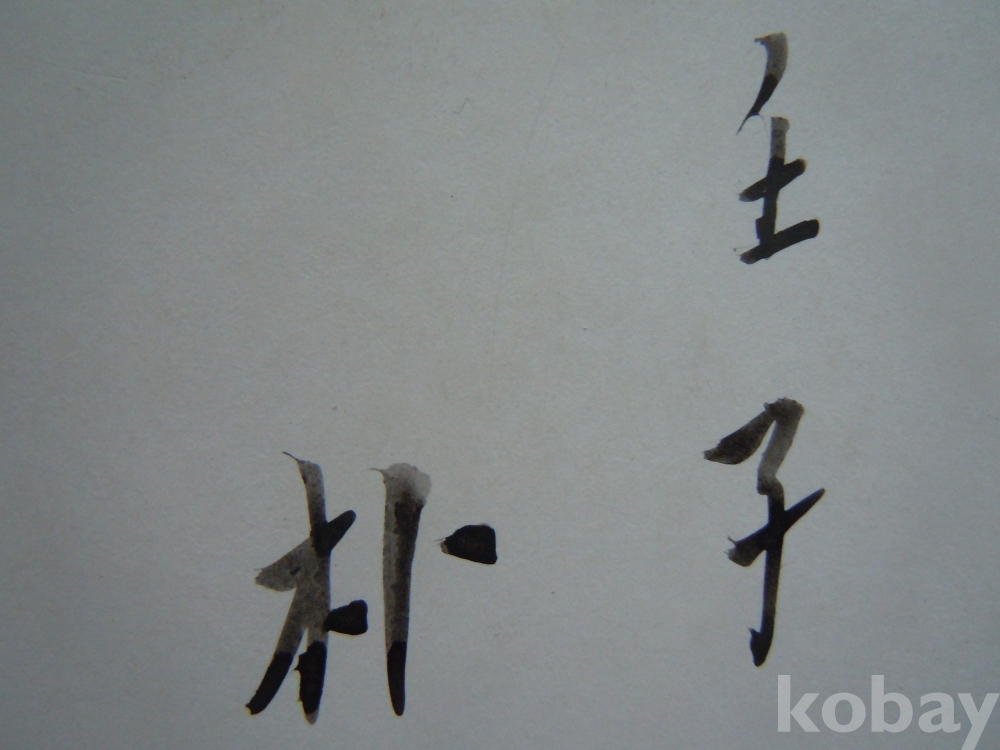 壬子
朴
kobay